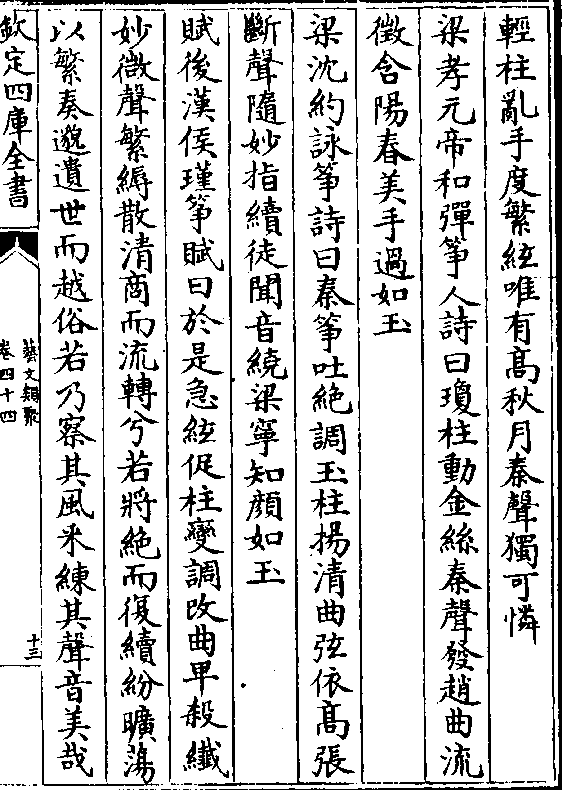 輕柱亂手度繁絃唯有髙秋月秦聲獨可憐
梁孝元帝和彈筝人詩曰瓊柱動金絲秦聲發趙曲流
徵含陽春美手過如玉
梁沈約詠筝詩曰秦筝吐絶調玉柱揚清曲弦依髙張
斷聲隨妙指續徒聞音繞梁寜知顔如玉
賦後漢侯瑾筝賦曰於是急絃促柱變調改曲卑殺纎
妙微聲繁縟散清商而流轉兮若將絶而復續紛曠蕩
以繁奏邈遺世而越俗若乃察其風采練其聲音美哉
欽定四庫全書
藝文類聚
卷四十四
十三